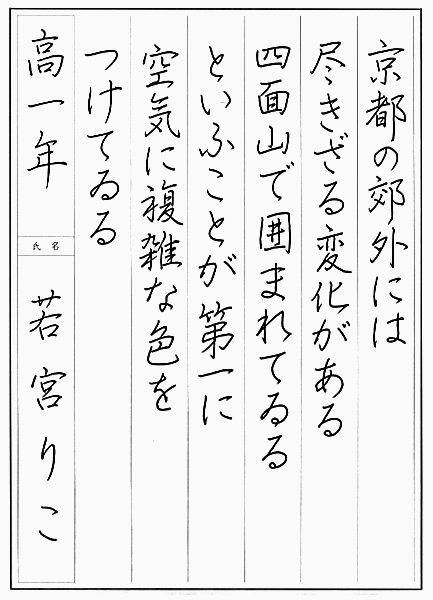 京都の郊外には
尽きざる変化がある
四面山で囲まれてゐる
といふことが第一に
空気に複雑な色を
つけてゐる
高一年
氏名
若宮りこ